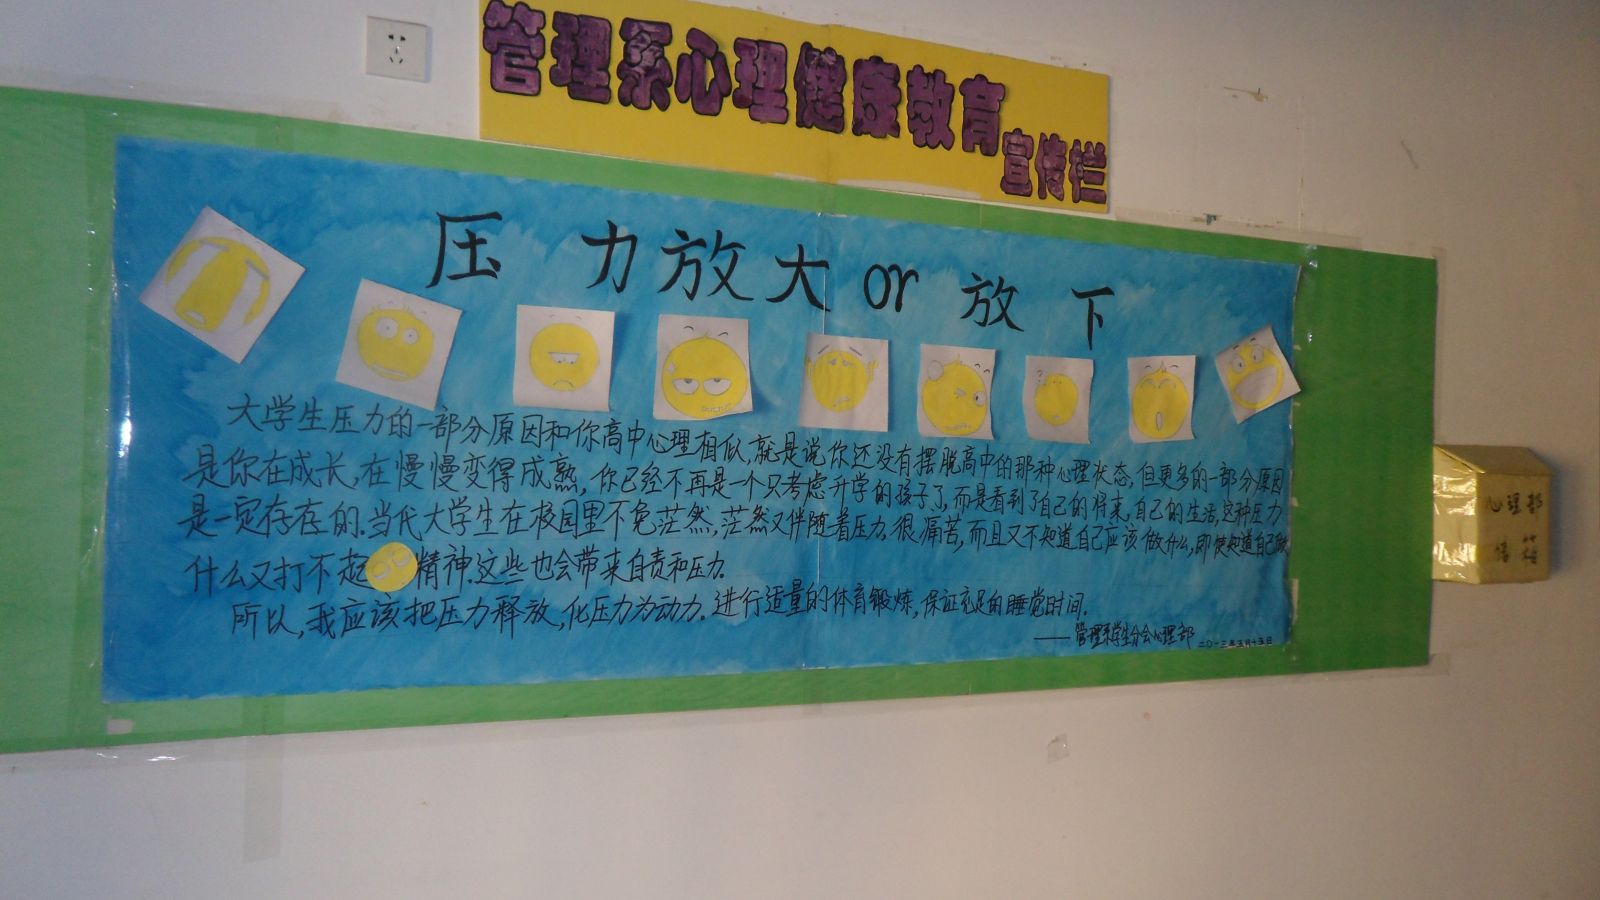 管理系心理健康教育
宣传栏
压力放大or放下
大学生压力的一部分原因和你高中心理相似,就是说你还没有摆脱高中的那种心理状态,但更多的一部分原因
是你在成长,在慢慢变得成熟,你已经不再是一个只考虑升学的孩子了,而是看到了自己的将来,自己的生活,这种压力
是一定存在的.当代大学生在校园里不免茫然,茫然又伴随着压力,很痛苦,而且又不知道自己应该做什么,即使知道自己
什么又打不起精神.这些也会带来自责和压力.
所以,我应该把压力释放,化压力为动力.进行适量的体育锻炼,保证充足的睡觉时间.
——管理系学生分会心理部
二〇一三年五月十五日
心理部
信箱